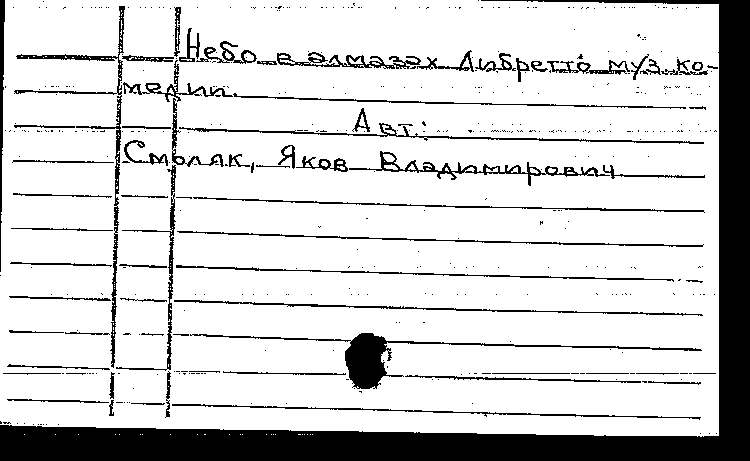 Небо в алмазах Либретто муз. ко-
медии.
Авт.:
Смоляк, Яков Владимирович